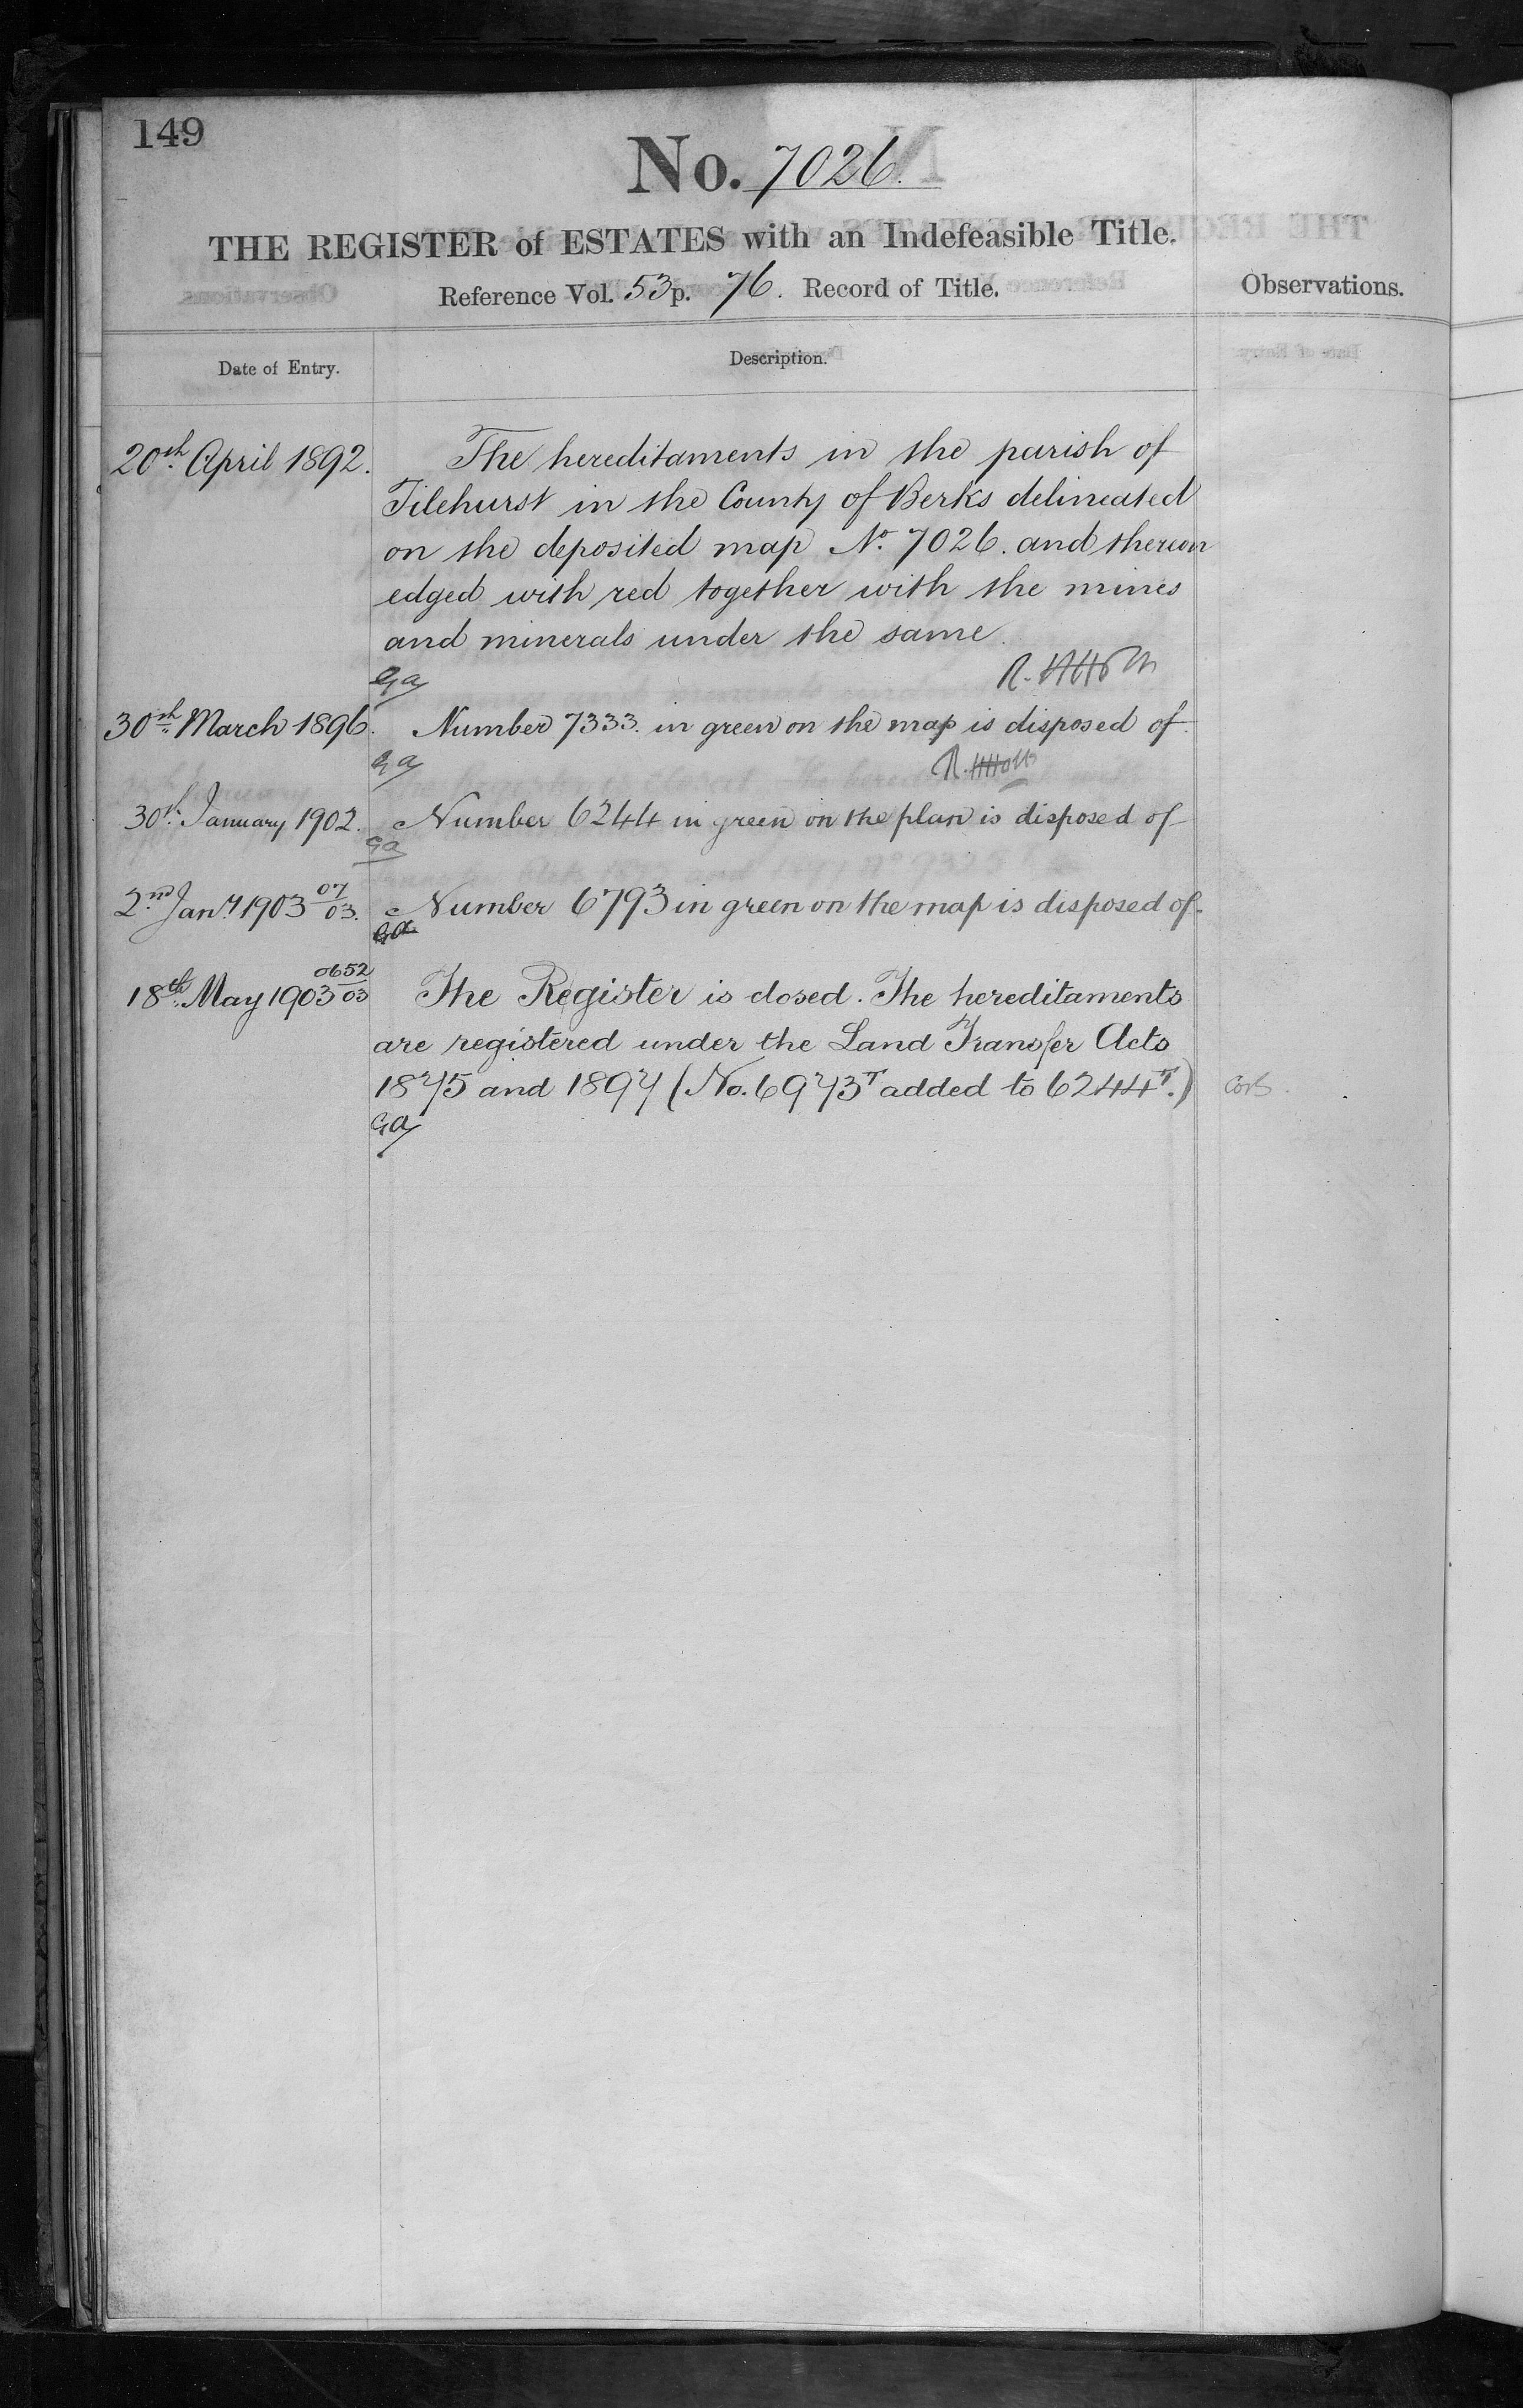 149
No. 7026.
THE REGISTER of ESTATES with an Indefeasible Title.
Reference Vol. 53 p. 76. Record of Title.
Observations.
Date of Entry.
Description.
20th April 1892.
The hereditaments in the parish of
Tilehurst in the County of Berks delineated
on the deposited map No. 7026. and thereon
edged with red together with the mines
and minerals under the same.
Ga
30th March 1896. Number 7333. in green on the map is disposed of.
Ga
30th January 1902. Number 6244 in green on the plan is disposed of
Ga
2nd Jany 1903 07/03. Number 6793 in green on the map is disposed of.
Ga
18th May 1903 0652/03 The Register is closed. The hereditaments
are registered under the Land Transfer Acts
1875 and 1897 (No. 6973T added to 6244T.)
Ga